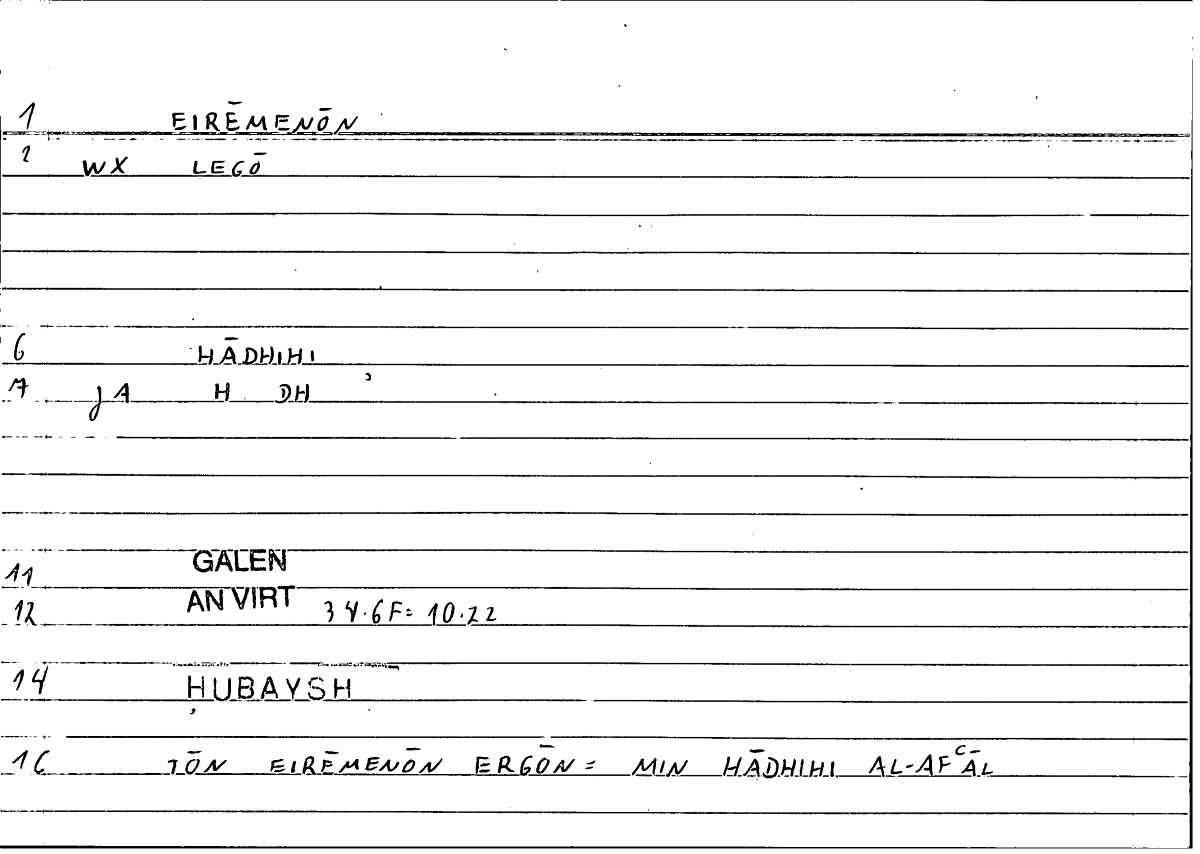 1 EIRĒMENŌN
2 WX LEGŌ
6 HĀDHIHI
7 JA H DH
11 GALEN
12 AN VIRT 34.6F= 10.22
14 ḤUBAYSH
16 TŌN EIRĒMENŌN ERGŌN = MIN HĀDHIHI AL-AFʿĀL